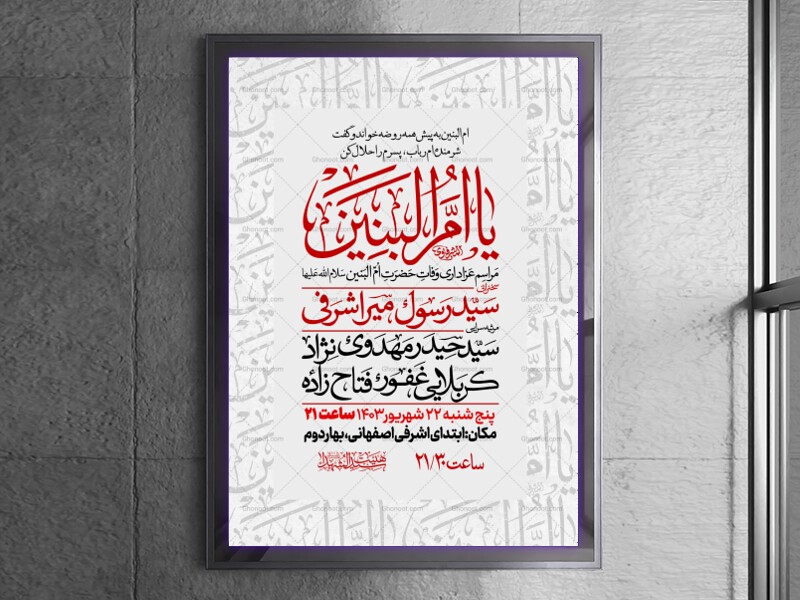 ام البنین به پیش همه روضه خواند و گفت
شرمنده ام رباب، پسرم را حلال کن
یا امَّ البَنِین
مراسم عزاداری وفات حضرت ام البنین سلام الله علیها
سخنرانی
سید رسول میراشرفی
مرثیه سرایی
سید حیدر مهدوی نژاد
کربلایی غفور فتاح زاده
پنج شنبه ۲۲ شهریور ۱۴۰۳ ساعت ۲۱
مکان: ابتدای اشرفی اصفهانی، بهار دوم
ساعت ۲۱/۳۰
هیئت سیدالشهدا
Ghonoot.com